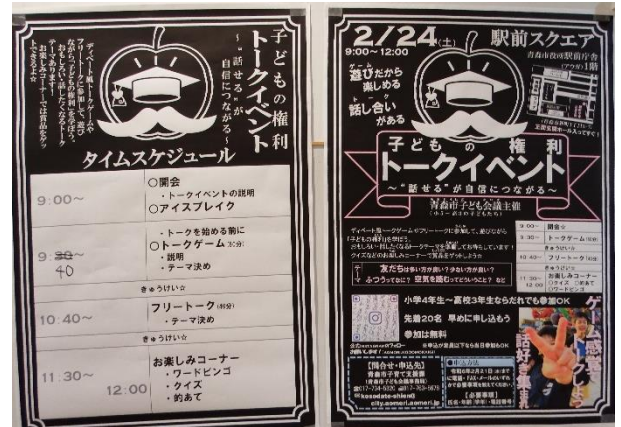 子どもの権利
トークイベント
～“話せる”が
自信につながる～
ディベート風トークゲームや
フリートークに参加して、遊び
ながら「子どもの権利」を学ぼう。
おもしろい・話したくなるトーク
テーマあります！
お楽しみコーナーでは賞品をゲッ
トできるよ☆
タイムスケジュール
9:00～
○開会
・トークイベントの説明
○アイスブレイク
9:30～
40
・トークを始める前に
○トークゲーム
・説明
・テーマ決め
きゅうけい☆
10:40～
フリートーク
・テーマ決め
きゅうけい☆
11:30～
12:00
お楽しみコーナー
・ワードビンゴ
・クイズ
・的あて
2/24(土)
9:00～12:00
駅前スクエア
青森市役所駅前庁舎
(アウガ)1階
ゲーム
遊びだから
楽しめる
トーク
話し合い
がある
子どもの権利
トークイベント
～“話せる”が自信につながる～
青森市子ども会議主催
ディベート風トークゲームやフリートークに参加して、遊びながら
「子どもの権利」を学ぼう。
おもしろい・話したくなるトークテーマを準備してお待ちしています！
クイズなどのお楽しみコーナーで賞品をゲットしよう☆
テーマ
友だちは多い方が良い？少ない方が良い？
ふつうってなに？ 空気を読むってどういうこと？ など
9:00～ 開会☆
9:30～ トークゲーム
きゅうけい☆
10:40～ フリートーク
きゅうけい☆
11:30～
12:00
お楽しみコーナー
○クイズ ○的あて
○ワードビンゴ
小学4年生～高校3年生ならだれでも参加OK
先着20名 早めに申し込もう
参加は無料
【問合せ・申込先】
青森市子育て支援課
●申込方法
【必要事項】
ゲーム感覚で
トークしよう
話好き集まれ